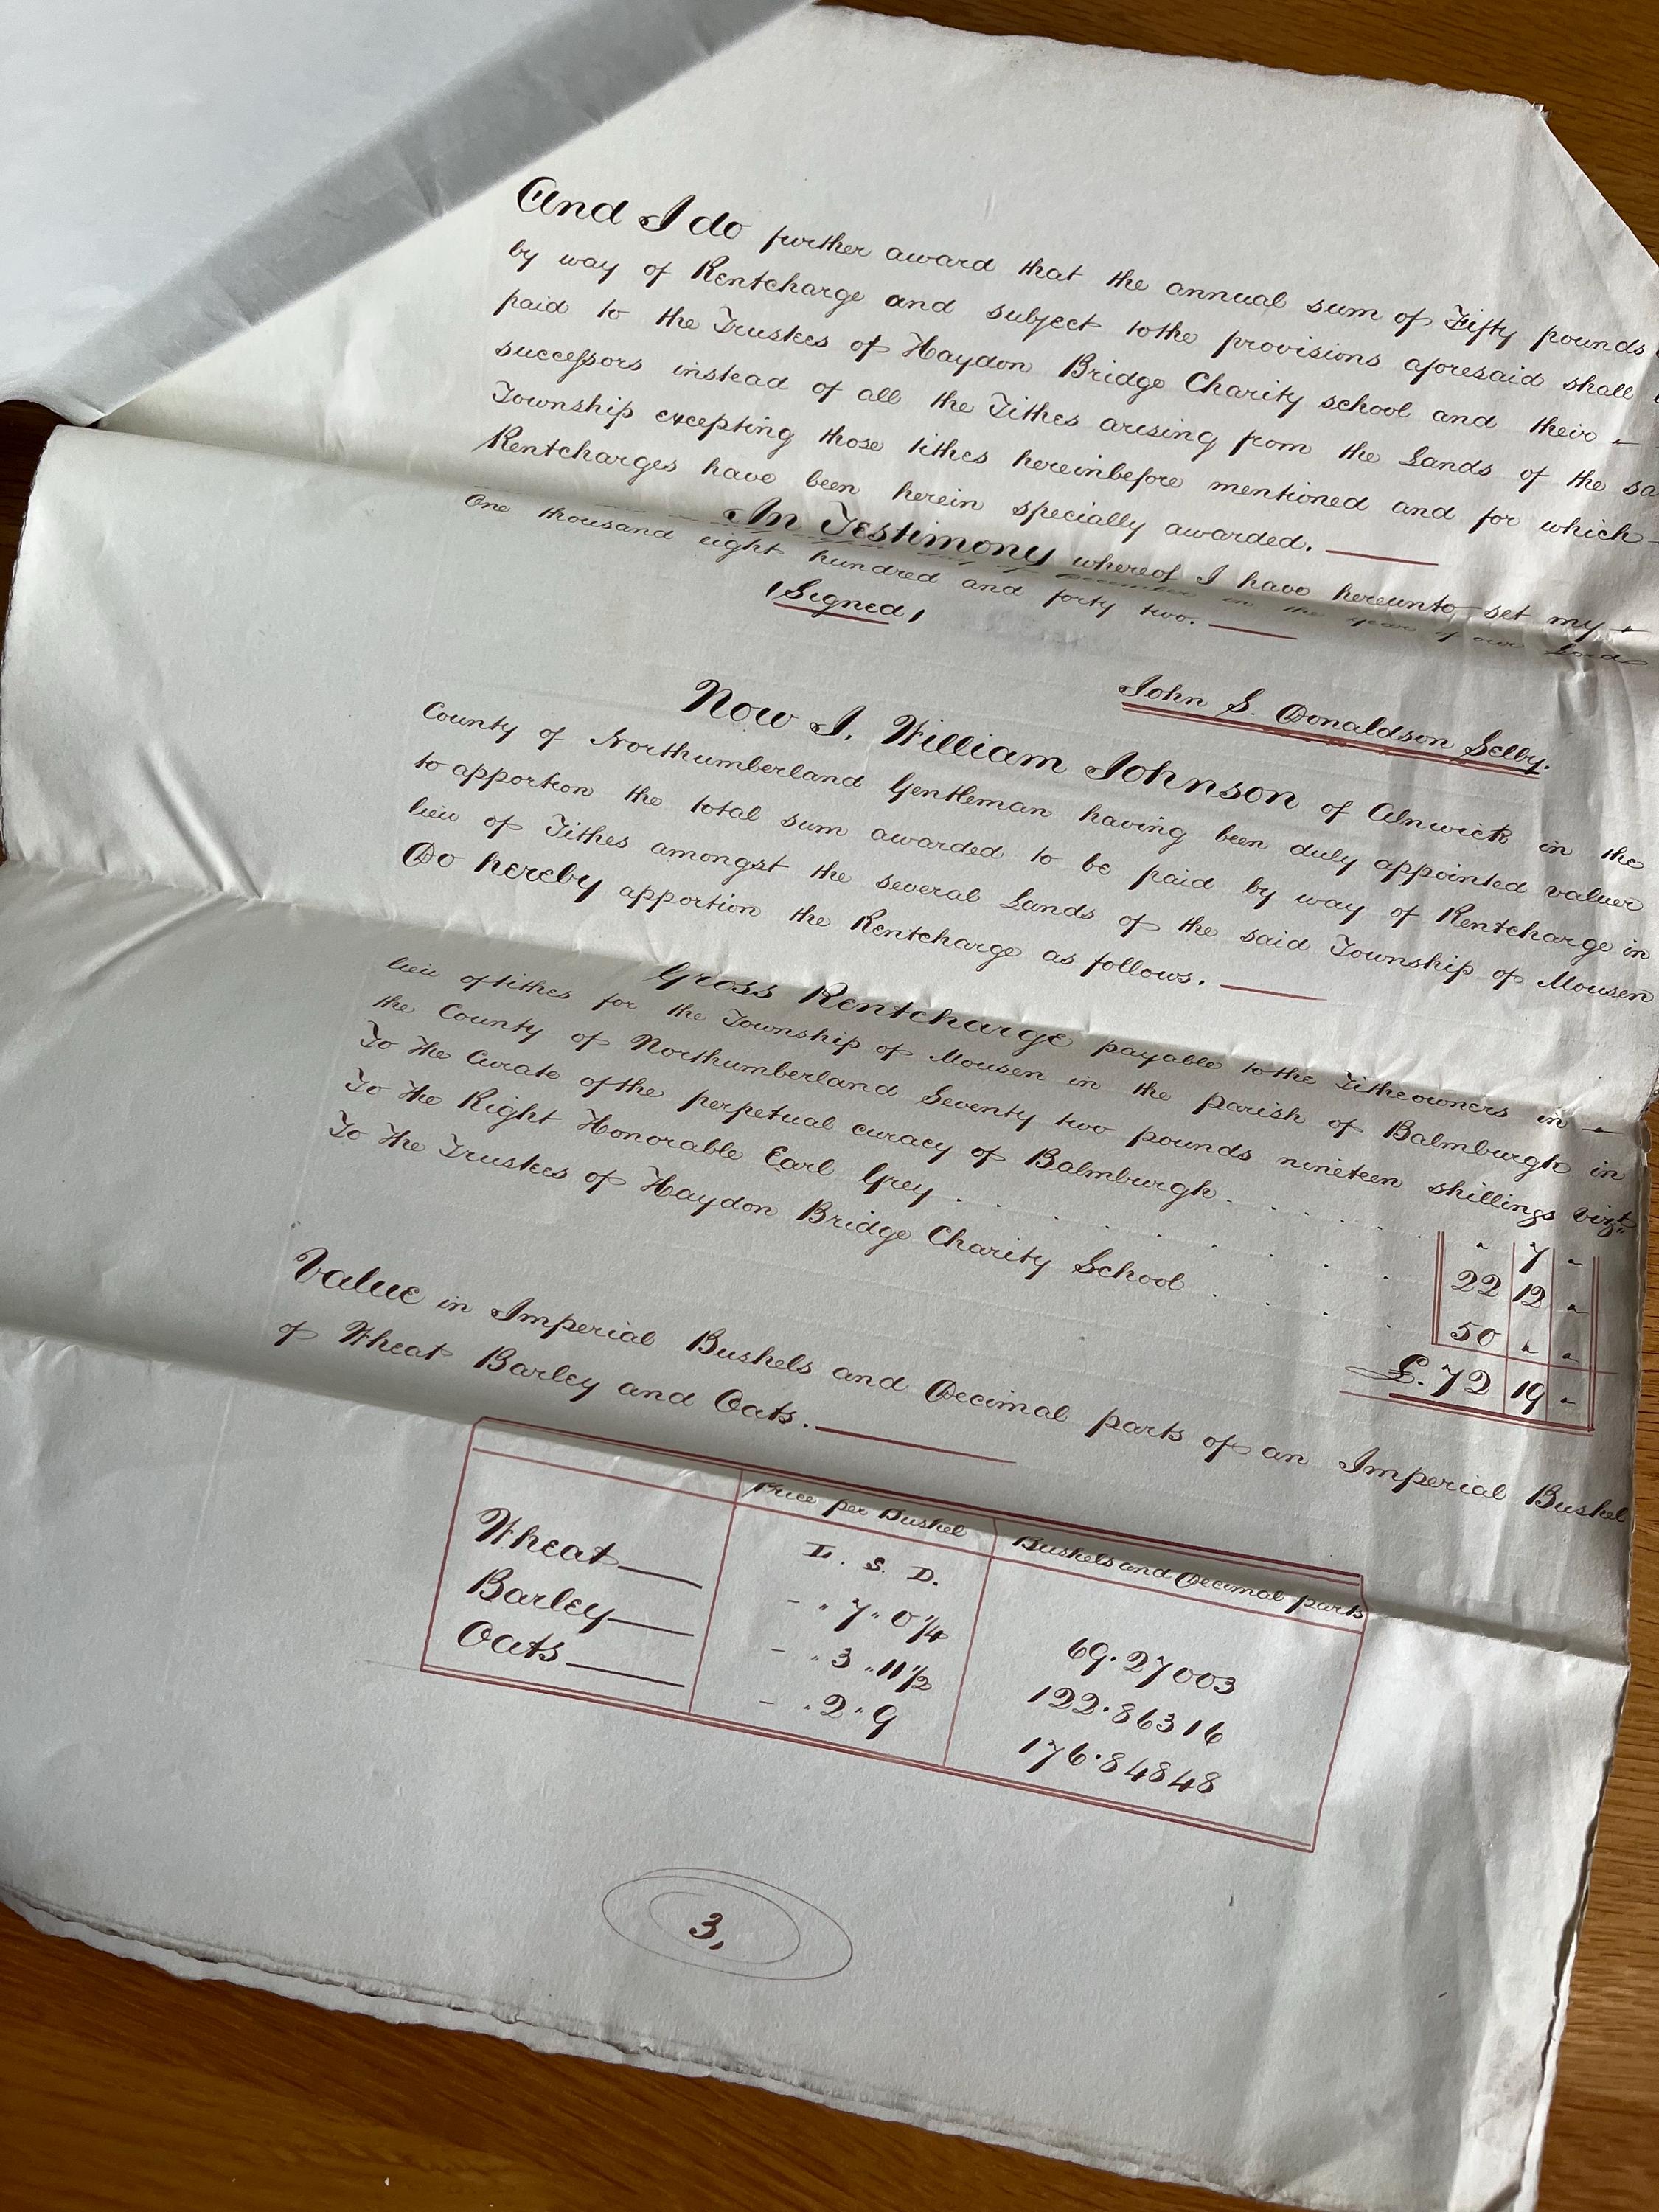 And I do further award that the annual sum of Fifty pounds
by way of Rentcharge and subject to the provisions aforesaid shall
paid to the Trustees of Haydon Bridge Charity school and their
successors instead of all the Tithes arising from the Lands of the sa
Township excepting those tithes hereinbefore mentioned and for which
Rentcharges have been herein specially awarded.
In Testimony whereof I have hereunto set my
of December in the year of our Lord
One thousand eight hundred and forty two.
(Signed)
John S. Donaldson Selby.
Now I, William Johnson of Alnwick in the
County of Northumberland Gentleman having been duly appointed valuer
to apportion the total sum awarded to be paid by way of Rentcharge in
lieu of Tithes amongst the several Lands of the said Township of Mousen
Do hereby apportion the Rentcharge as follows.
Gross Rentcharge payable to the Titheowners in
lieu of tithes for the Township of Mousen in the parish of Balmburgh in
the County of Northumberland Seventy two pounds nineteen shillings vizt
To the Curate of the perpetual curacy of Balmburgh . . . . . " 7 "
To the Right Honorable Earl Grey . . . . . . . . 22 12 "
To the Trustees of Haydon Bridge Charity School . . . . . 50 " "
£. 72 19 "
Value in Imperial Bushels and Decimal parts of an Imperial Bushel
of Wheat Barley and Oats.
Price per Bushel Bushels and Decimal parts
L. S. D.
Wheat - " 7 " 0 1/4 69.27003
Barley - " 3 " 11 1/2 122.86316
Oats - " 2 " 9 176.84848
3,